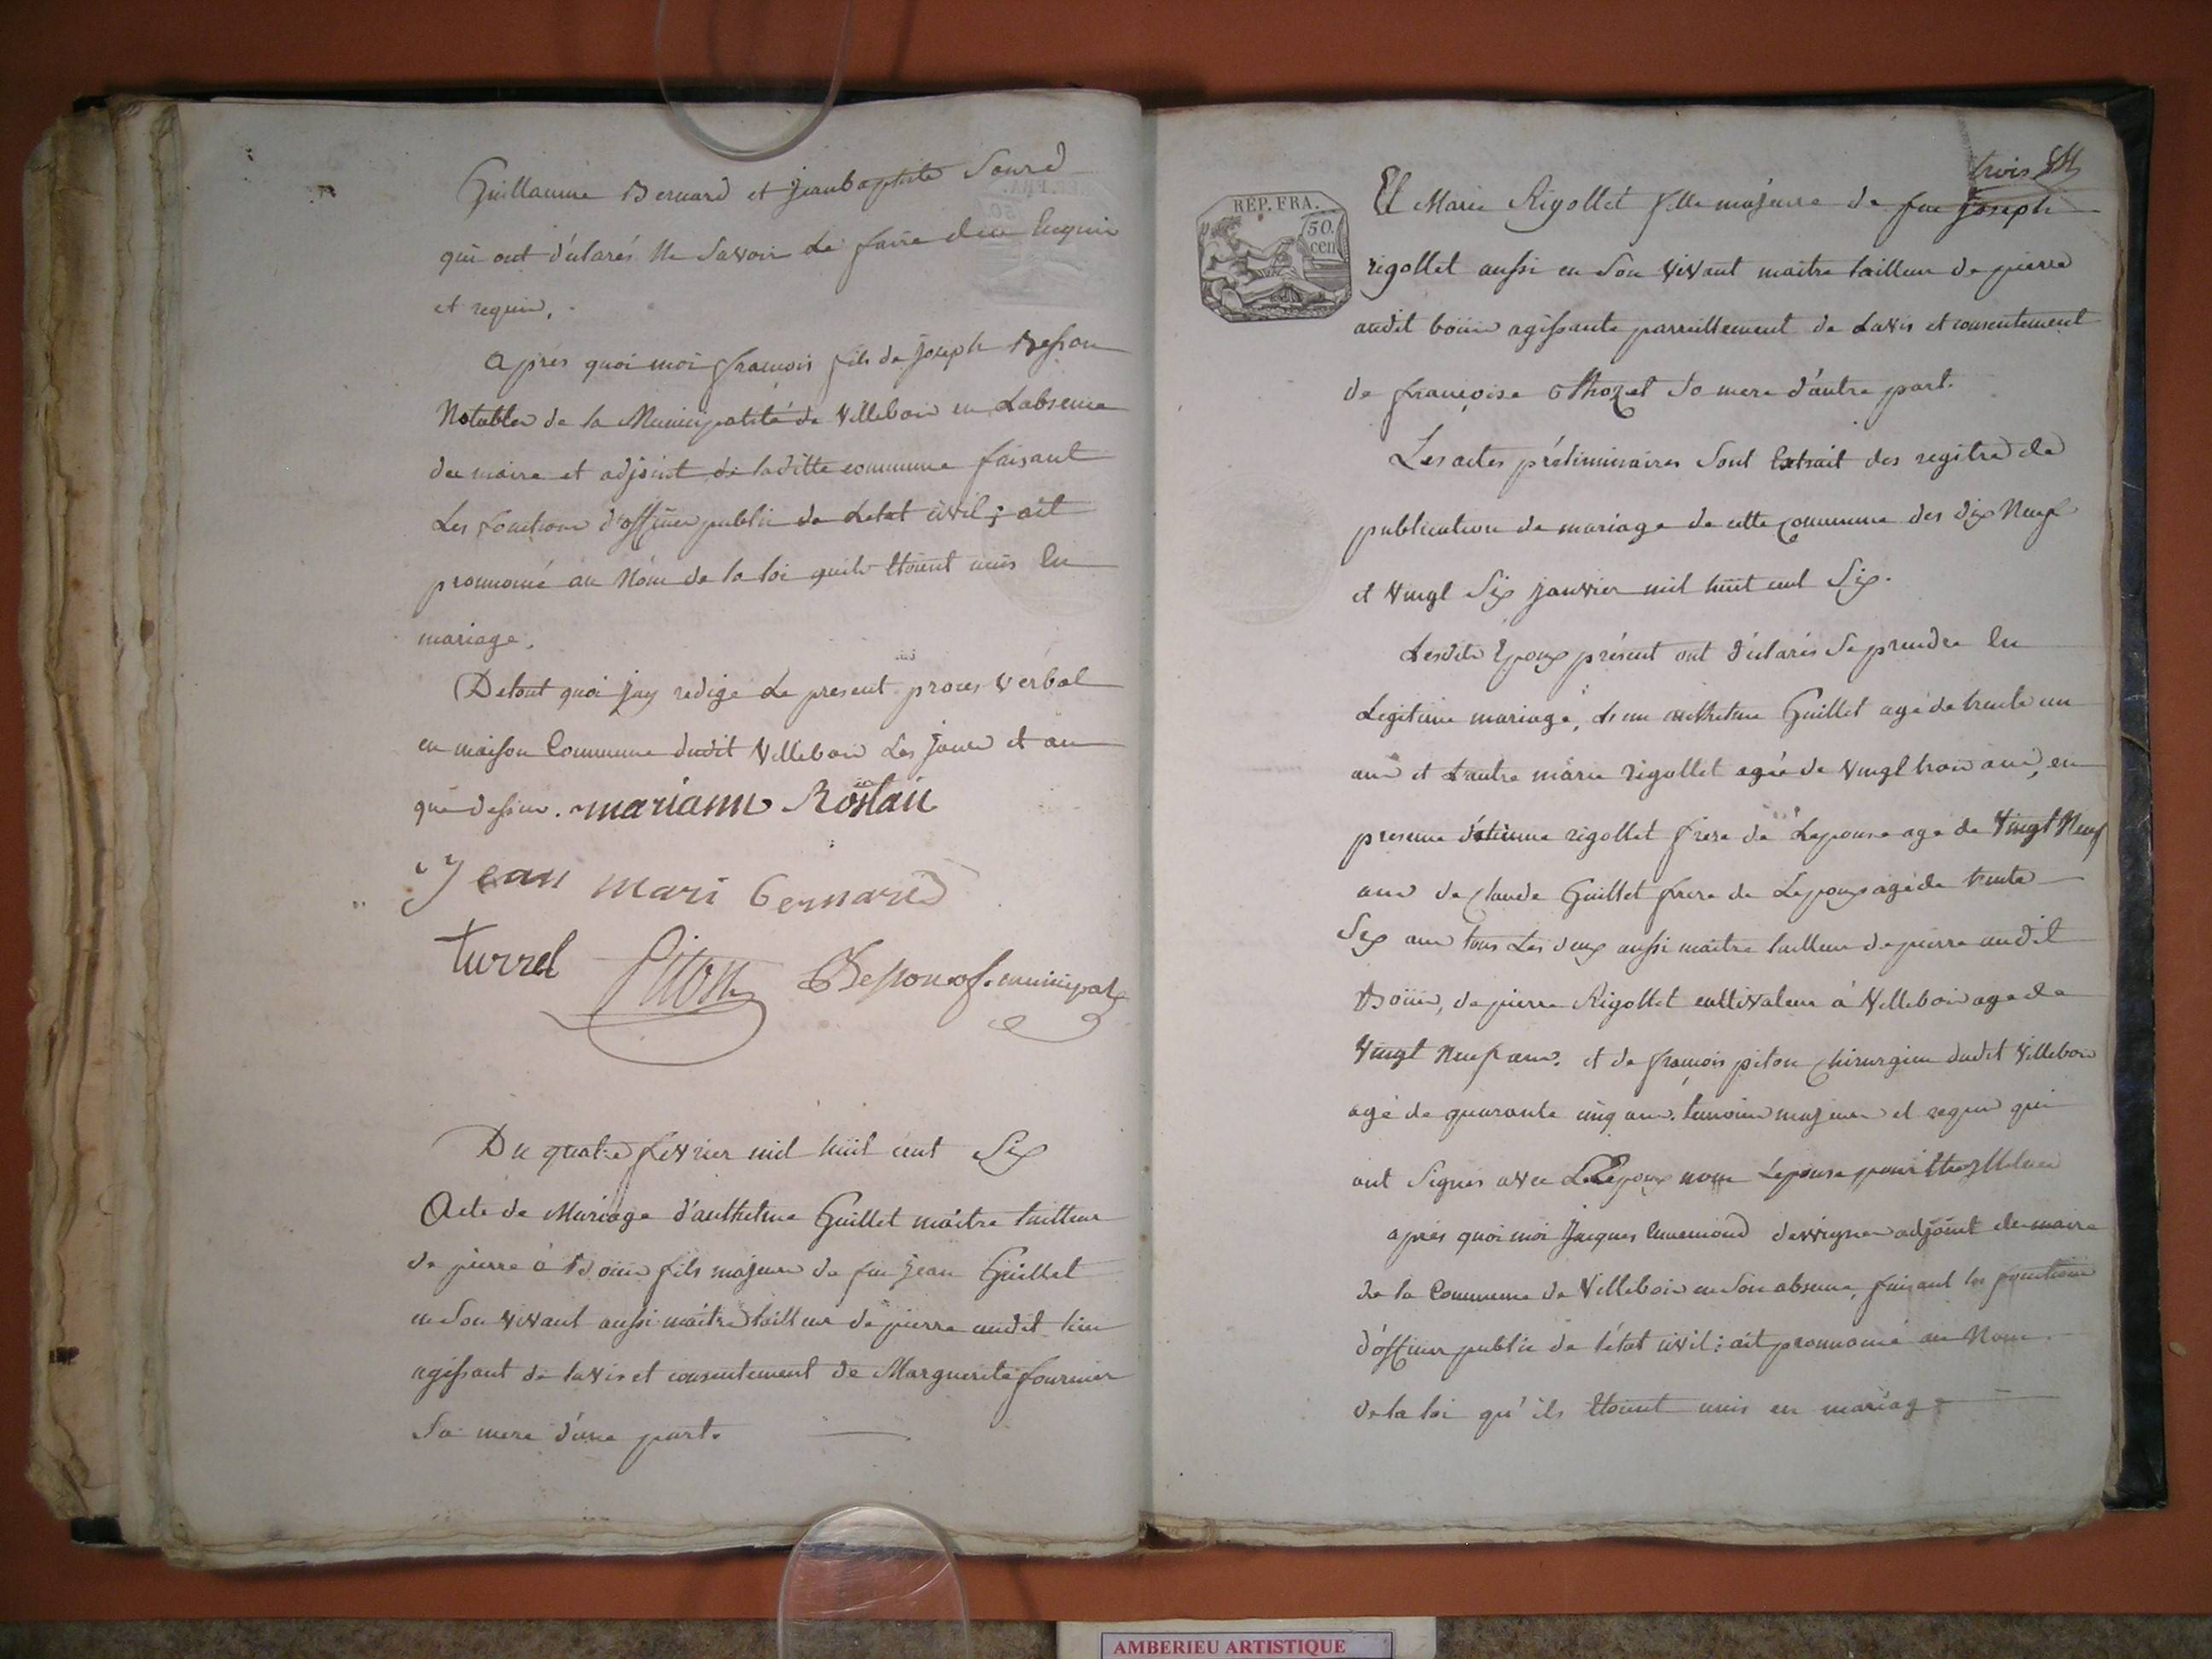 Guillaume Bernard et jeanbaptiste Sourd
qui ont déclarés ne Savoir Le faire de ce Enquis
et requis.
Après quoi moi françois fils de Joseph Besson
Notable de la Municipalité de Villebois en Labsence
du maire et adjoint de laditte commune faisant
Les fonctions d'officier public de Letat civil; ait
prononcé au Nom de la loi quils Etoient unis En
mariage.
De tout quoi jay redigé Le present procès Verbal
en maison Commune dudit Villebois Les jour et an
que dessus. mariann Rostain
Jean mari Bernard
turrel Piton Besson of. municipal
Du quatre fevrier mil huit cent Six
Acte de Mariage d'authelme Guillet maitre tailleur
de pierre à Boüis fils majeur de feu Jean Guillet
en Son Vivant aussi maitre tailleur de pierre audit lieu
agissant de Lavis et consentement de Marguerite fournier
Sa mere d'une part.
trois
REP. FRA.
50.
cen
Et Marie Rigollet fille majeure de feu Joseph
rigollet aussi en Son Vivant maitre tailleur de pierre
audit boüis agissante pareillement de Lavis et consentement
de françoise Thozet Sa mere d'autre part.
Les actes préliminaires Sont Extrait des registre de
publication de mariage de cette Commune des dix Neuf
et Vingt Six janvier mil huit cent Six.
Lesdits Epoux présent ont déclarés Se prendre En
Legitime mariage, Lun authelme Guillet agé de trente un
ans et Lautre marie rigollet agée de Vingt trois ans, en
presence d'étienne rigollet frere de Lepouse agé de Vingt Neuf
ans de Claude Guillet frere de Lepoux agé de trente
Six ans tous Les deux aussi maitre tailleur de pierre audit
Boüis, de pierre Rigollet cultivateur à Villebois agé de
Vingt Neuf ans. et de françois piton Chirurgien dudit Villebois
agé de quarante cinq ans. temoins majeurs et requis qui
ont Signés avec L'Epoux non Lepouse pour
après quoi moi Jacques Ennemond adjoint du maire
de la Commune de Villebois en Son absence, faisant les fonctions
d'officier public de l'état civil: ait prononcé au Nom
de la loi qu'ils Etoient unis en mariage
AMBERIEU ARTISTIQUE